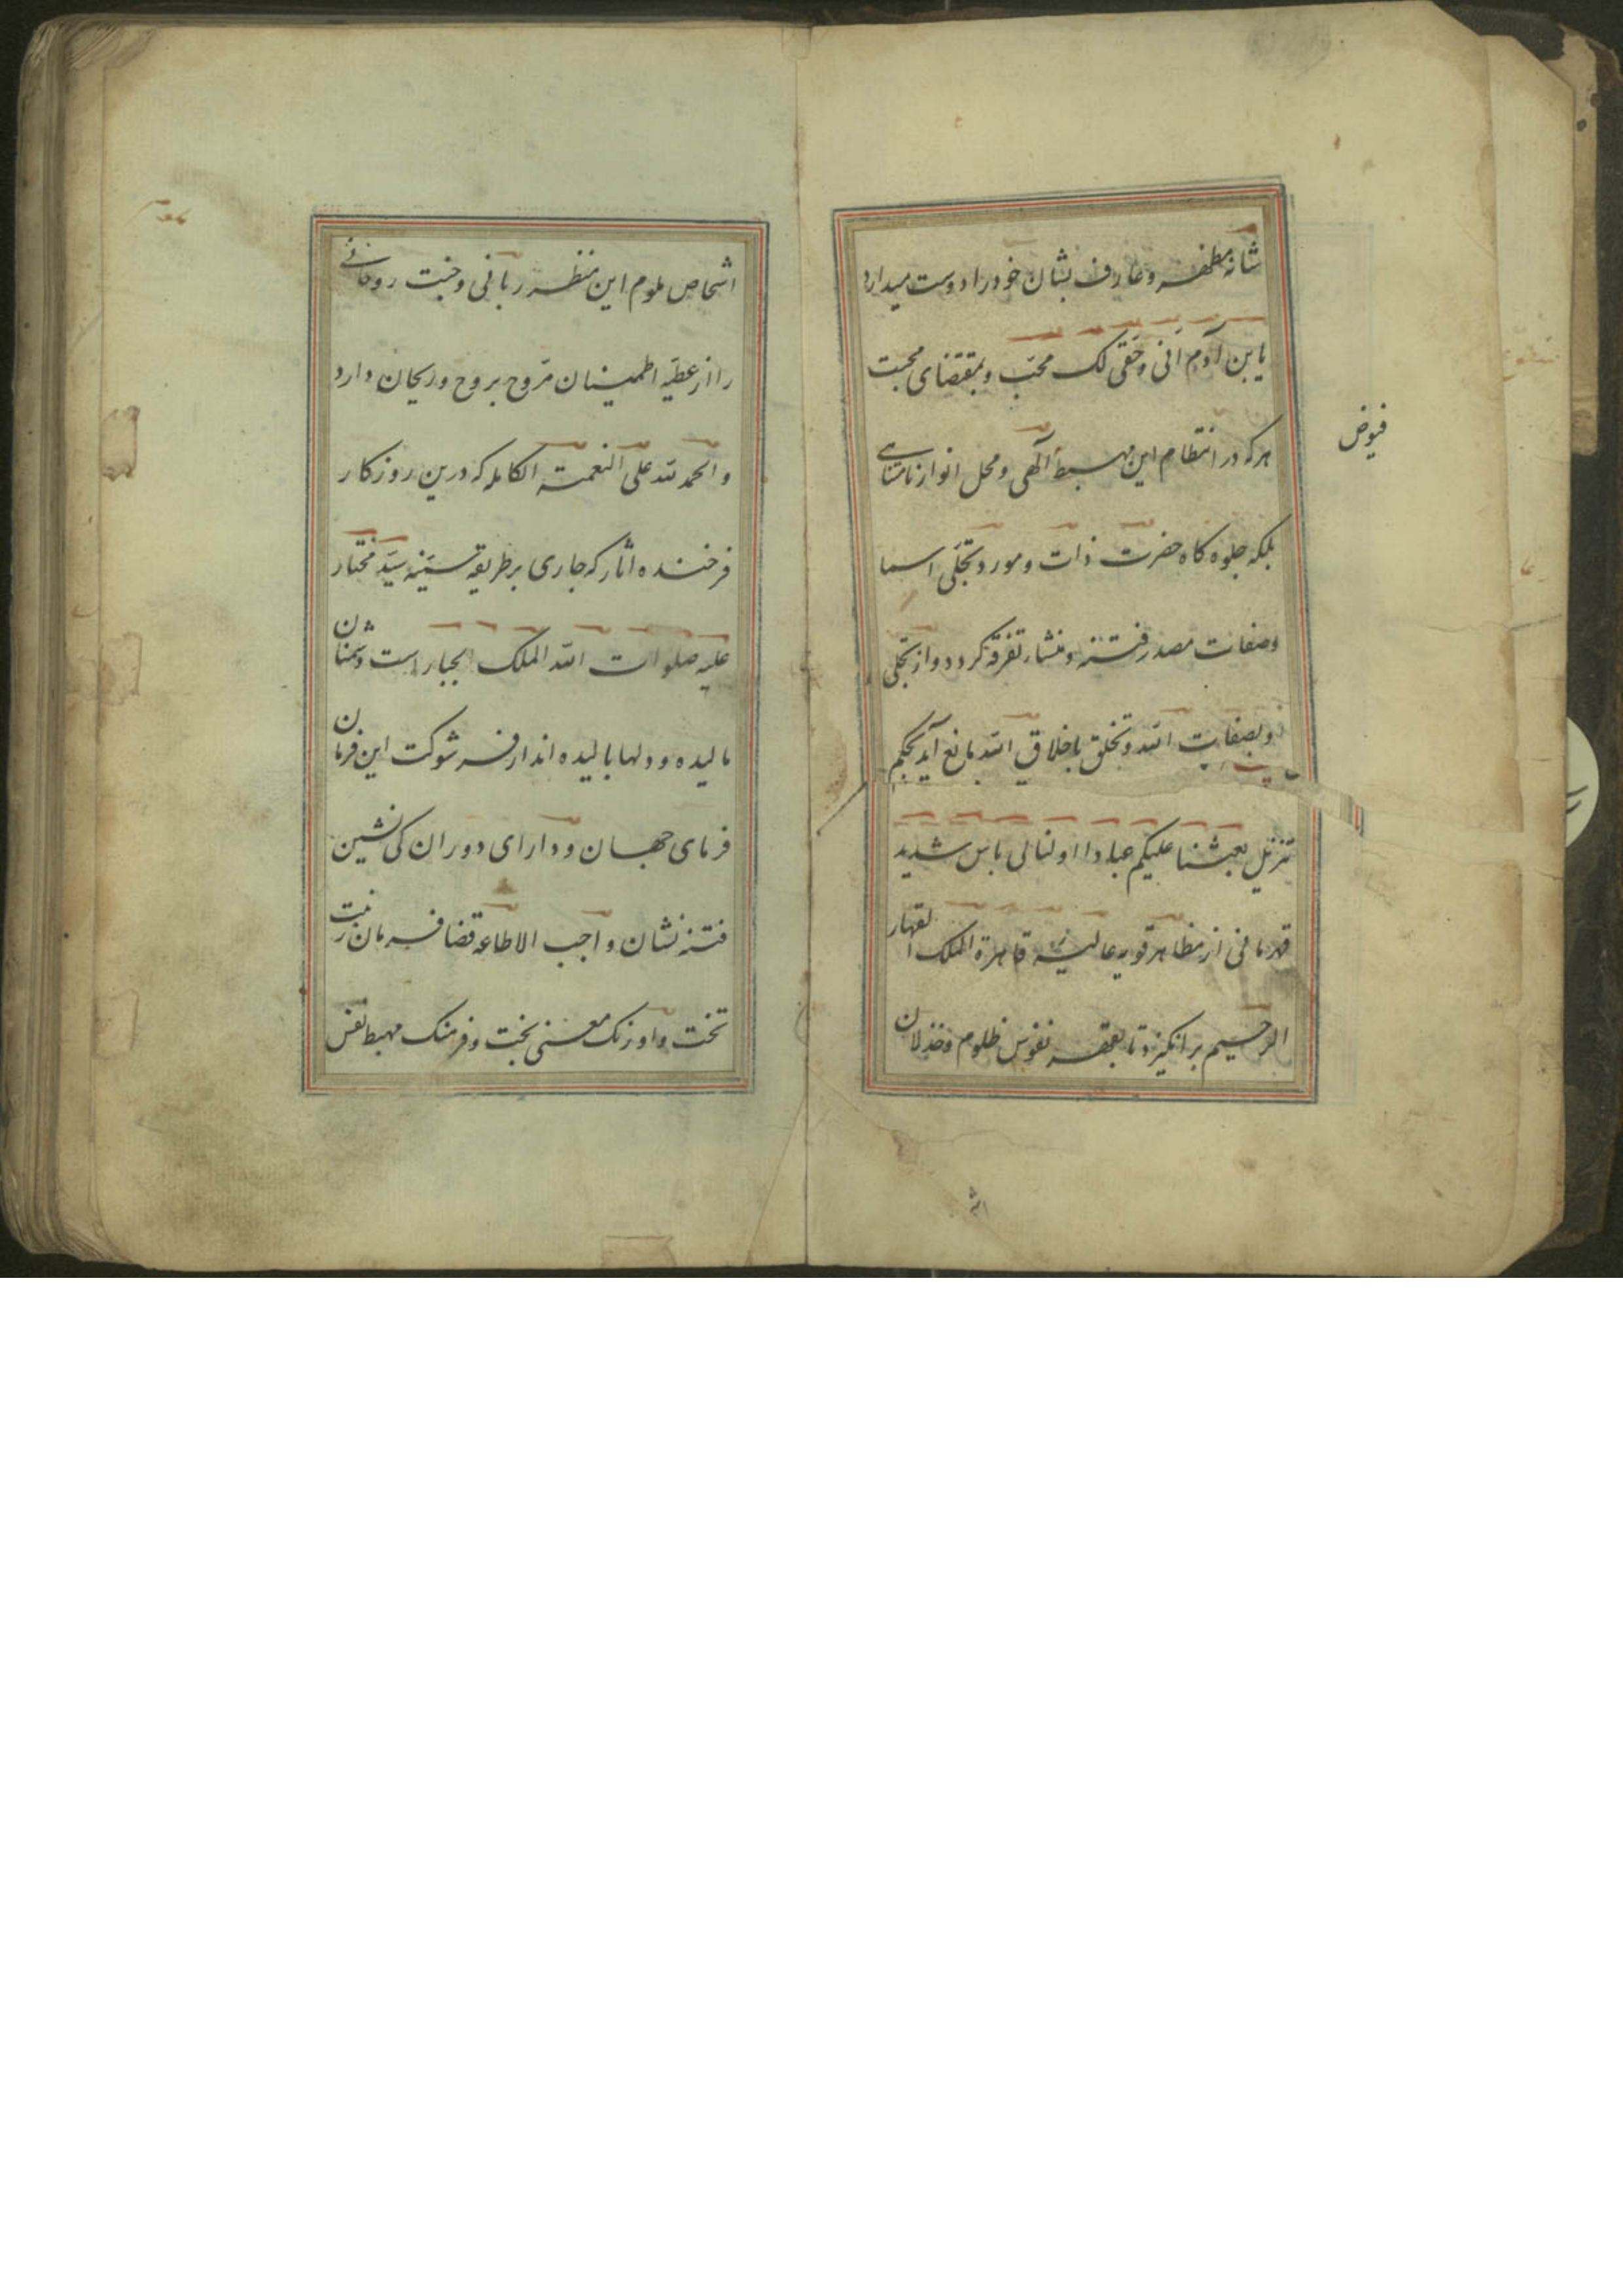 شانه مظهر و عارف بشان خود را دوست میدارد
یابن آدم انی وحقی لک محب و بمقتضای محبت
هرکه در انتظام این مهبط آلهی و محل انوار نامتناهی
فیوض
بلکه جلوه کاه حضرت ذات و مورد تجلی اسما
وصفات مصدر فتنه و منشاء تفرقه کردد و از تجلی
وبصفات الله و تخلق باخلاق الله مانع آید بحکم
تنزیل بعثنا علیکم عبادا اولنا لی باس شدید
قهرمانی از مظاهر قویه عالیه قاهرة الملک القهار
الرحیم برانکیزد تا بقهر نفوس ظلوم و خذلان
اشخاص ملوم این منظر ربانی و جنت روحانی
را از عطیه اطمینان مروح بروح و ریحان دارد
والحمد لله علی النعمة الکامله که درین روزکار
فرخنده اثار که جاری بر طریقه سنیه سید مختار
علیه صلوات الله الملک الجبار است دشمنان
مالیده و دلها بالیده اند از فر شوکت این فرمان
فرمای جهان و دارای دوران کی نشین
فتنه نشان واجب الاطاعه قضا فرمان زینت
تخت و اورنک معنی بخت و فرهنک مهبط نفس